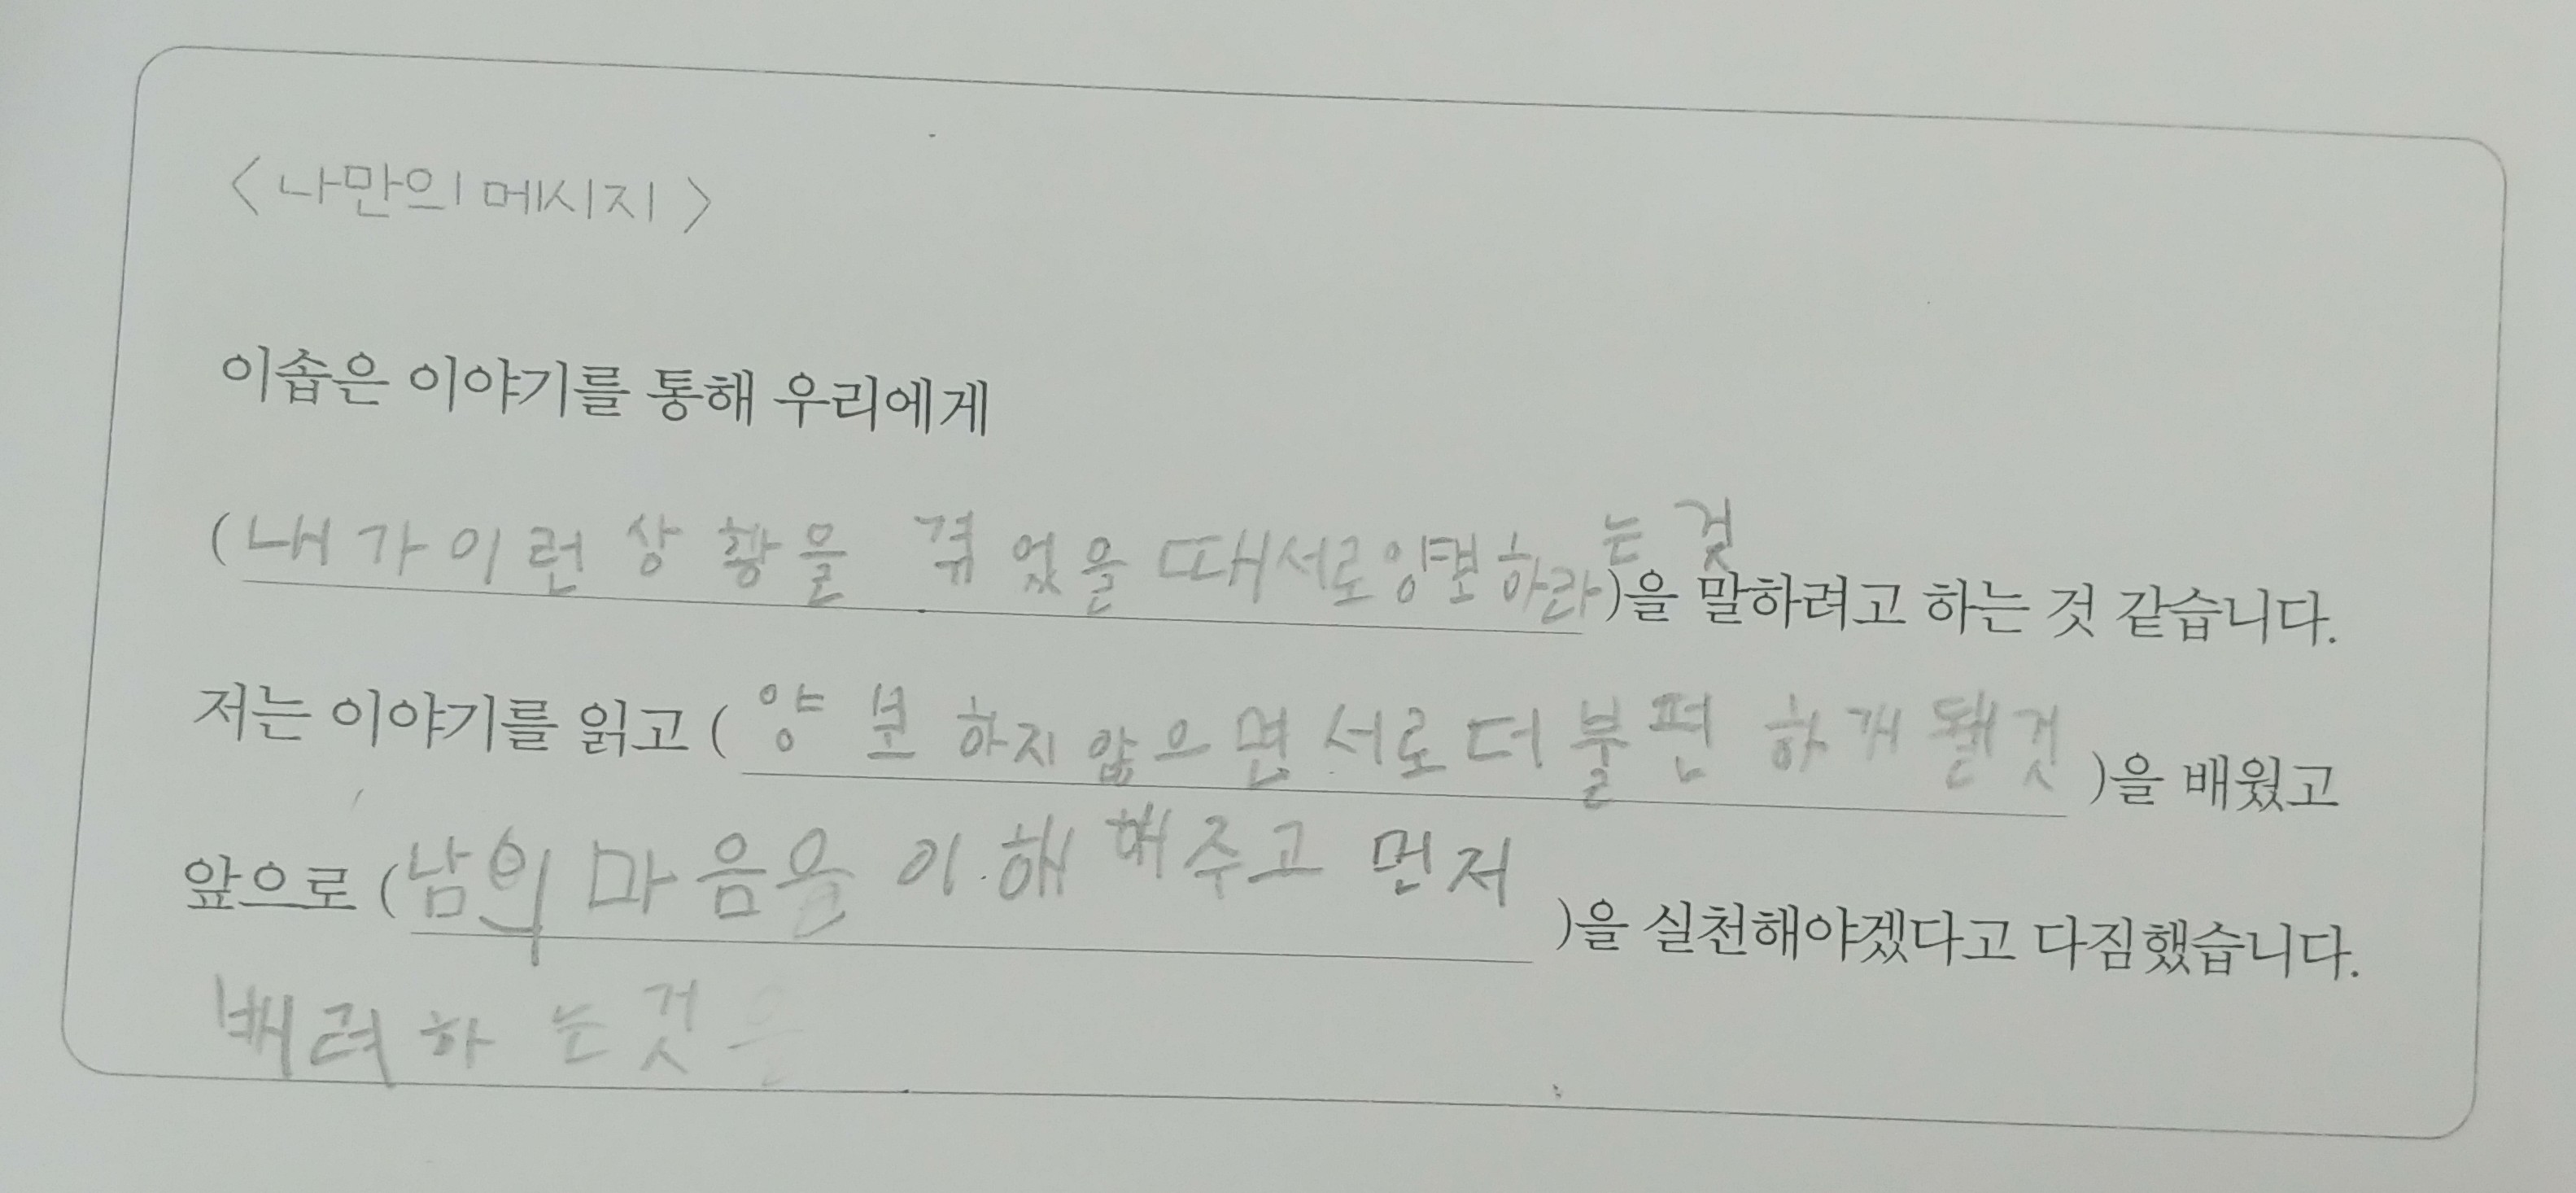 <나만의 메시지>
이솝은 이야기를 통해 우리에게
(내가 이런 상황을 겪었을 때 서로 양보하라는 것)을 말하려고 하는 것 같습니다.
저는 이야기를 읽고 (양보하지 않으면 서로 더 불편하게 될것)을 배웠고
앞으로 (남의 마음을 이해 해주고 먼저 )을 실천해야겠다고 다짐했습니다.
배려하는것